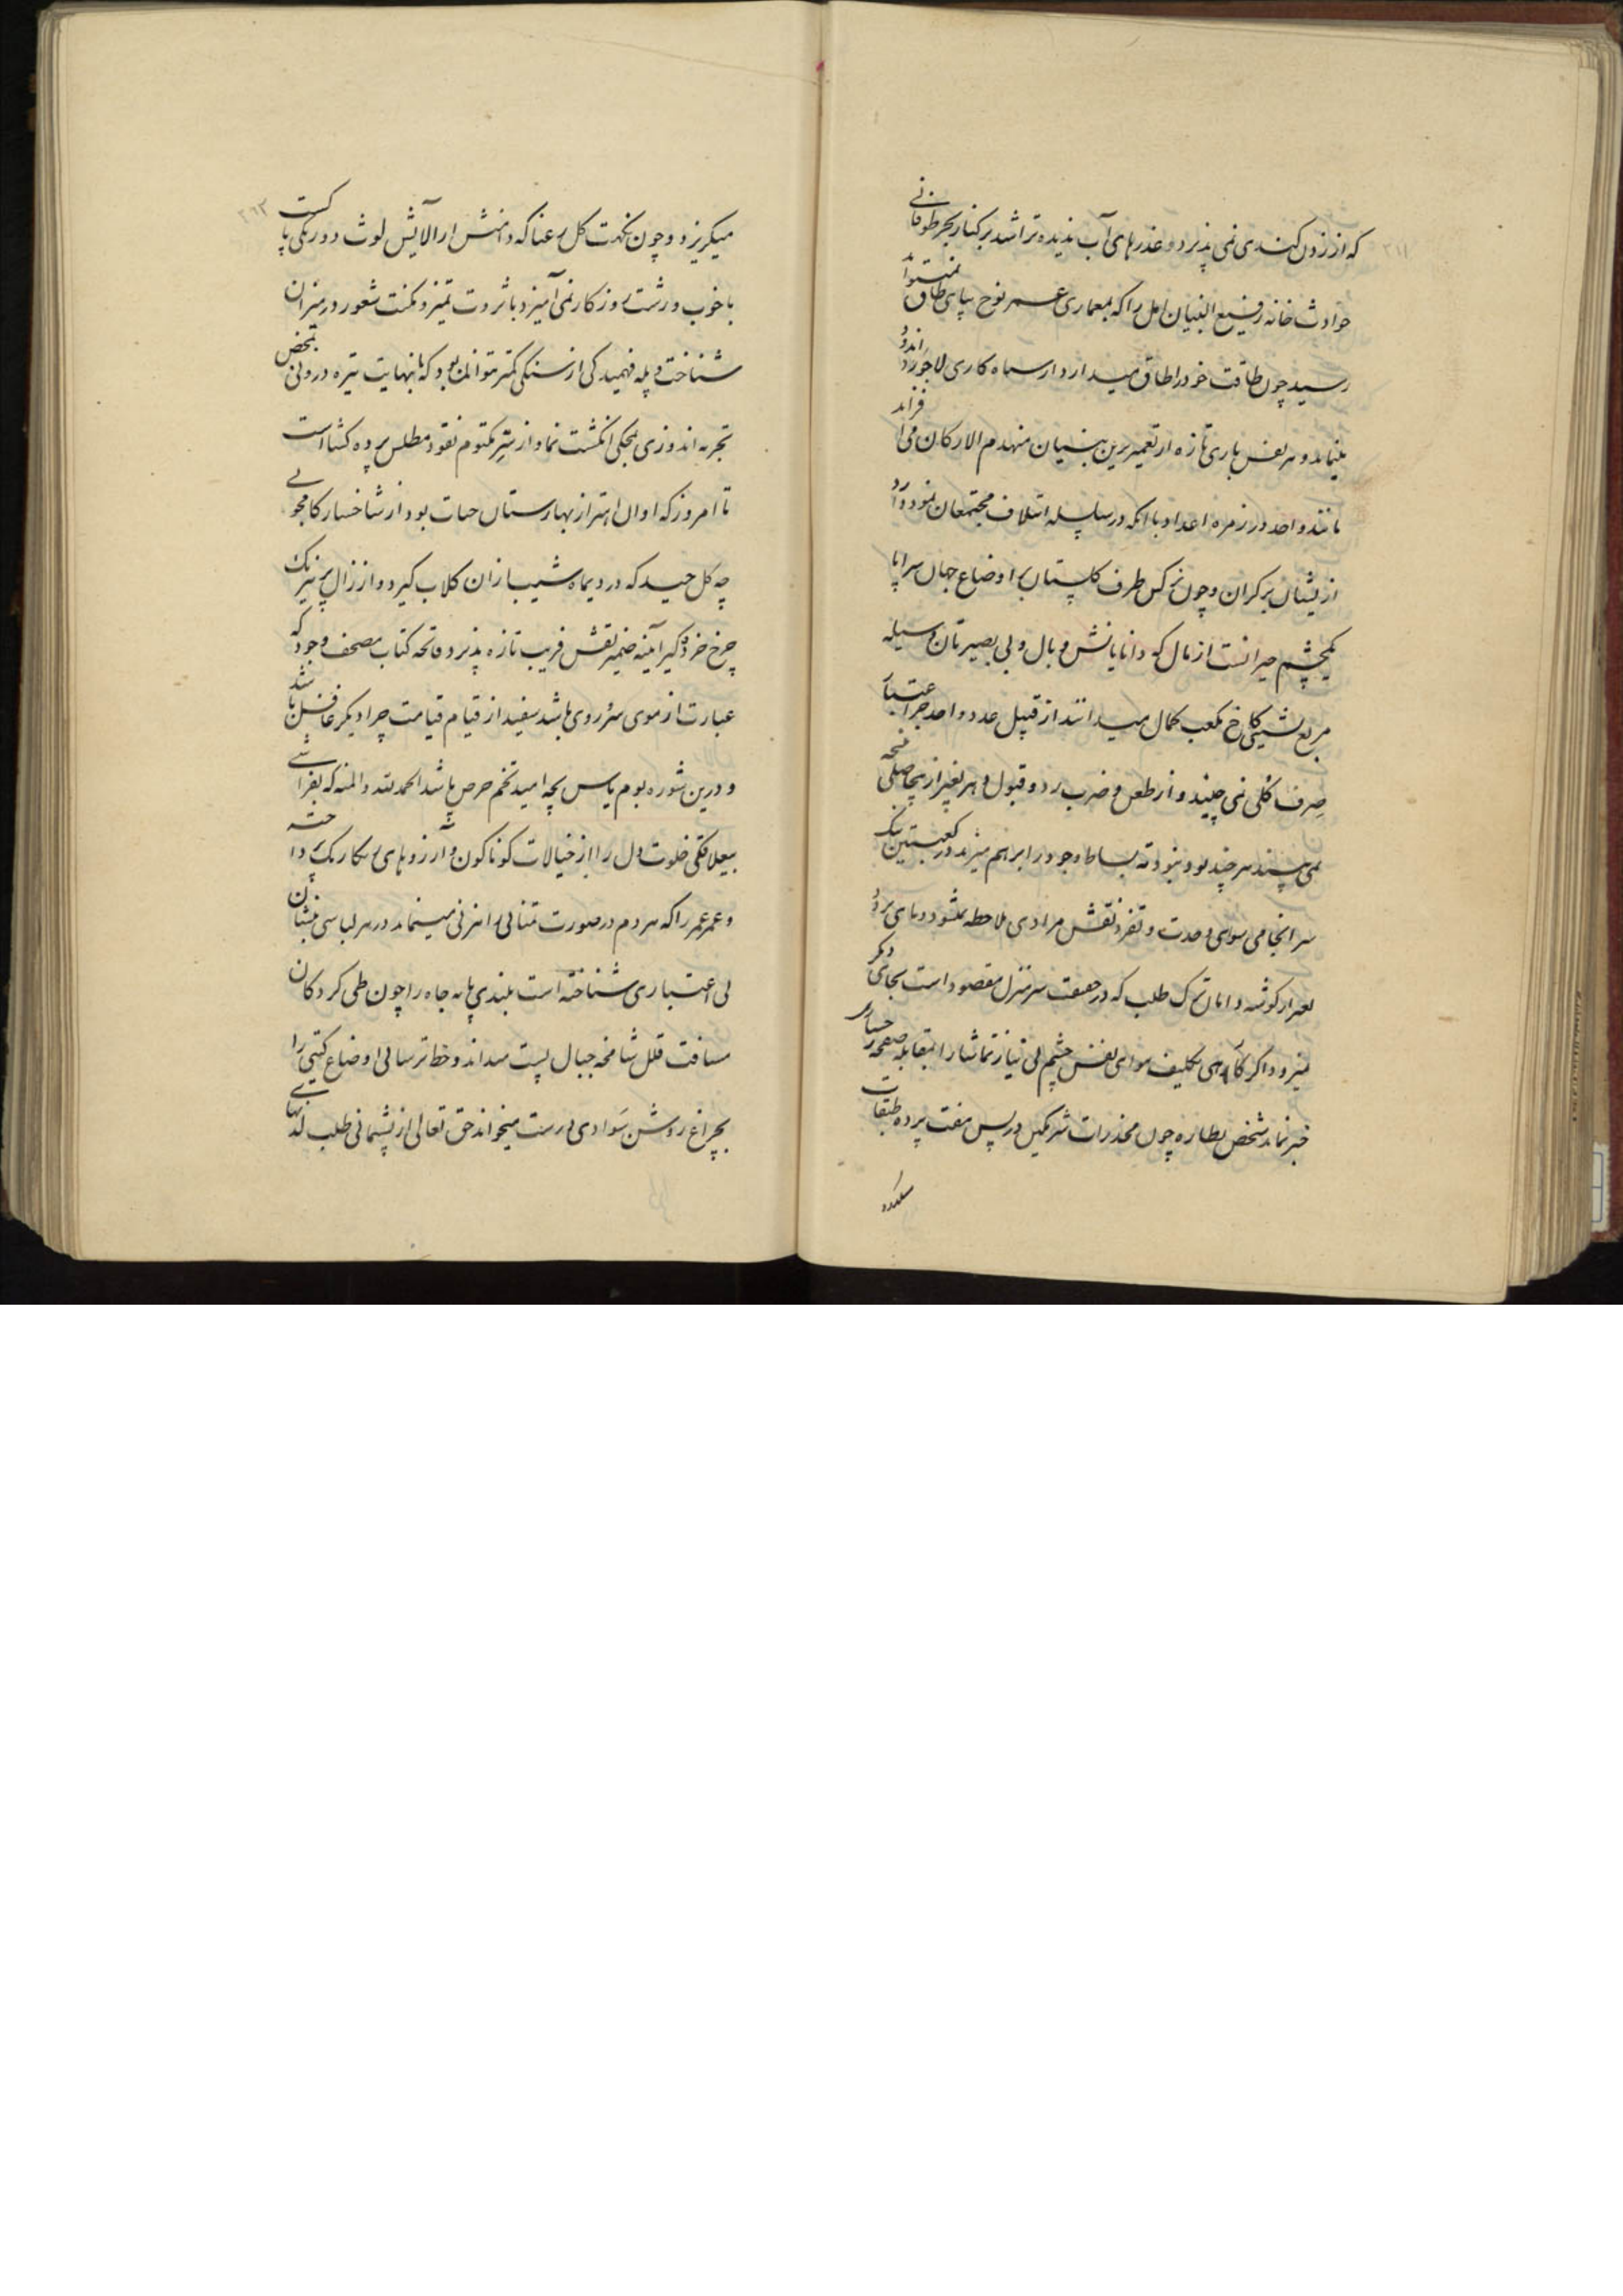 که از زدن کندی نمی پذیرد و عذرهای آب ندیده تراشد بر کنار بحر طوفانی
حوادث خانه رفیع البنیان امل را که بمعماری عمر نوح بپای طاق نمیتواند
رسید چون طاقت خود را طاق میدارد از سیاه کاری لاجورد اندود
مینماید و هر نفس باری تازه از تعمیر برین بنیان منهدم الارکان می افزاید
مانند واحد در زمره اعداد با آنکه در سلسله ائتلاف مجتمعان بنمود دارد
از ایشان بر کران و چون نرگس طرف گلستان بر اوضاع جهان سراپا
یکچشم حیرانست از مال که دانایانش وبال و بی بصیرتان وسیله
مربع نشینی کاخ مکعب کمال میدانند از قبیل عدد واحد جز اعتبار
صرف گلی نمی چیند و از طعن و ضرب رد و قبول دهر بغیر از بیحاصلی نتیجه
نمی بیند هر چند بود و نبود ته بساط وجود را برهم میزند در کعبتین نیک
سرانجامی سوای وحدت و تفرد نقش مرادی ملاحظه نمیشود و پای تردد
بغیر از گوشه دامان ترک طلب که در حقیقت سرمنزل مقصود است بجای دیگر
نمیرود اگر گاهی بتکلیف هوای نفس چشم بی نیاز تماشا را بمقابله صفحه رخساری
خبر نماید شخص نظاره چون مخدرات شرمگین در پس هفت پرده طبقات
میگریزد و چون نکهت گل رعنا که دامنش از آلایش لوث دورنگی پاکست
با خوب و زشت روزگار نمی آمیزد با ثروت تمیز و مکنت شعور در میزان
شناخت و پله فهمیدگی از سنگی کمتر نتوان بود که با نهایت تیره درونی بمحض
تجربه اندوزی بمحکی انگشت نما و از سِرّ مکتوم نقود مطلس پرده گشا است
تا امروز که اوان اهتزاز بهارستان حیات بود از شاخسار کامجویی
چه گل چید که در دیماه شیب ازان گلاب گیرد و از زال پر نیرنگ
چرخ خرده گیر آینه ضمیر نقش فریب تازه پذیرد و فاتحه کتاب مصحف وجود که
عبارت از موی سر و روی باشد سفید از قیام قیامت چرا دیگر غافل باشد
و درین شوره بوم یاس بچه امید تخم حرص پاشد الحمد لله و المنه که بفراشی
بیعلاقگی خلوت دل را از خیالات گوناگون و آرزوهای رنگارنگ پرداخته
و عمر عمر را که هر دم در صورت تمثالی راهزنی مینماید در هر لباسی بنشان
بی اعتباری شناخته است بلندی پایه جاه را چون طی کرد کان
مسافت قلل شامخه جبال پست میداند و خط ترسائی اوضاع گیتی را
بچراغ روشن سوادی درست میخواند حق تعالی از پشیمانی طلب لذتهای